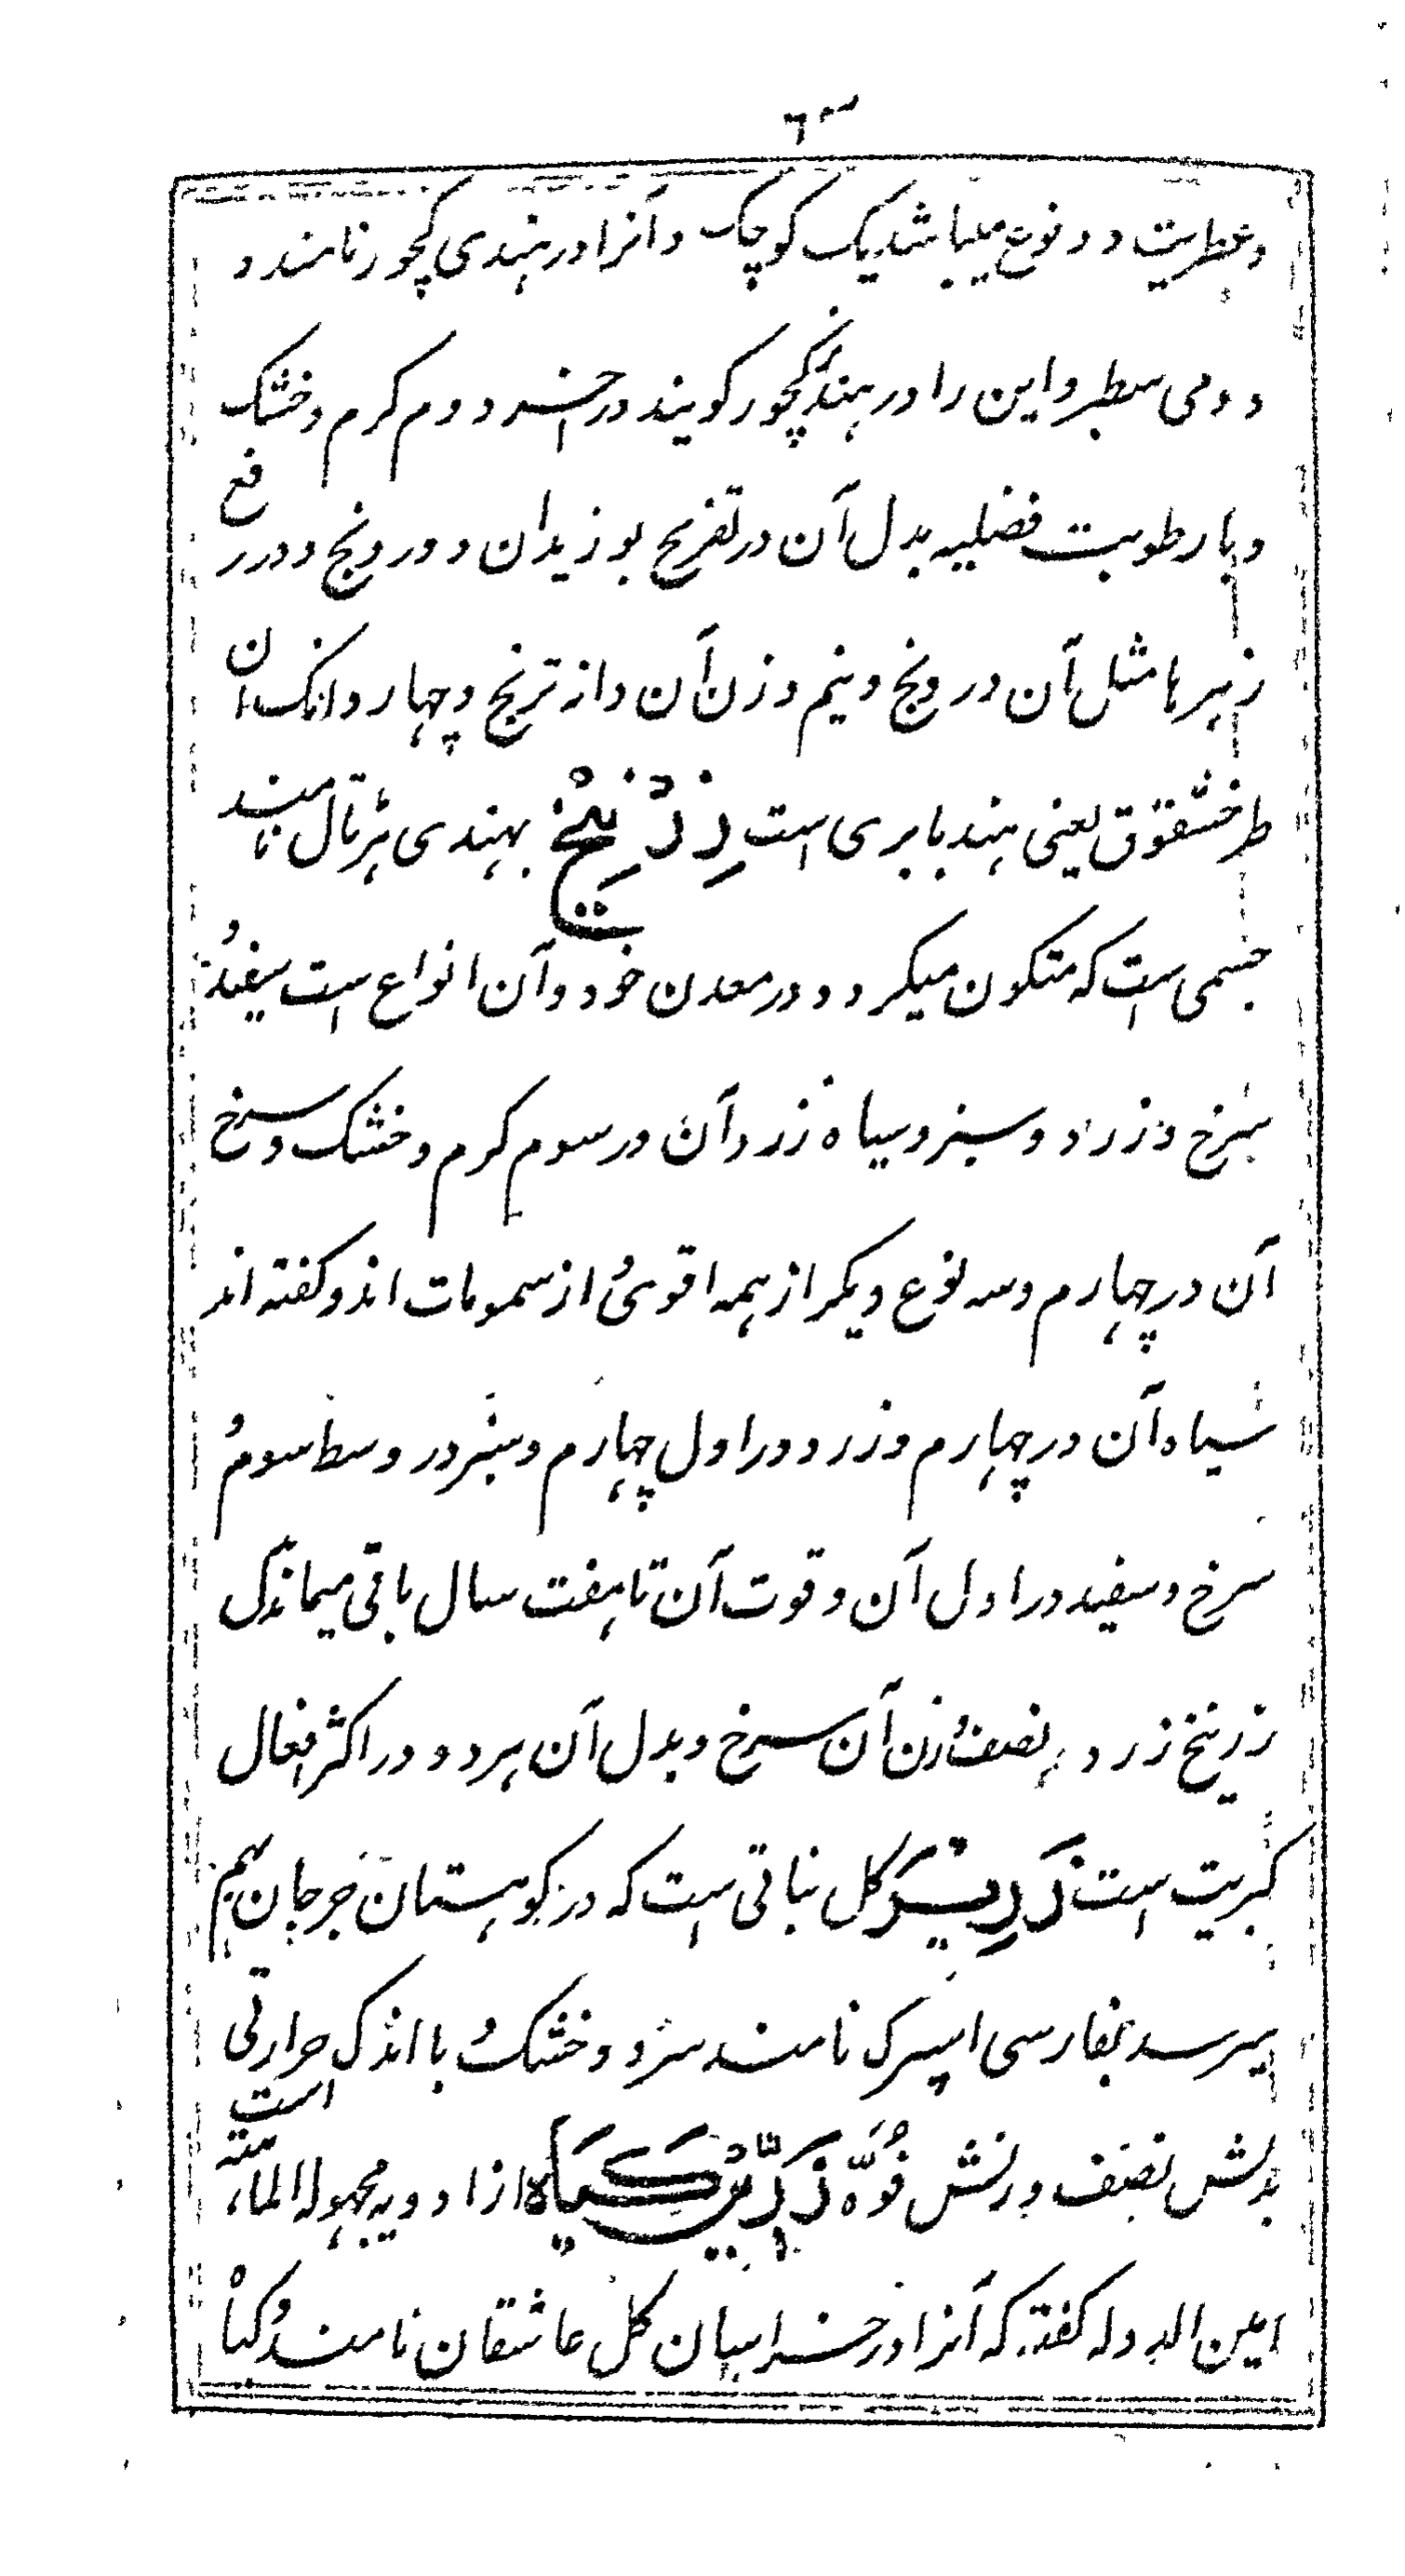 وعطریت و دو نوع میباشد یک کوچک و آنرا در هندی کچور نامند و
دومی سطبر و این را در هند کچور کویند در اخر دوم کرم و خشک
و با رطوبت فضلیه بدل آن در تفریح بوزیدان و درونج و در رفع
زهرها مثل آن درونج و نیم وزن آن دانه ترنج و چهار دانک ان
طرخشقوق یعنی هندبا بری است زِرْنِیْخ بهندی هڑتال نامند
جسمی است که متکون میکردد در معدن خود و آن انواع است سفید و
سرخ و زرد و سبز و سیاه زرد آن در سوم کرم و خشک و سرخ
آن در چهارم و سه نوع دیکر از همه اقوی و از سمومات اند و کفته اند
سیاه آن در چهارم و زرد در اول چهارم و سبز در وسط سوم و
سرخ و سفید در اول آن و قوت آن تا هفت سال باقی میماند بدل
زرنیخ زرد نصف وزن آن سرخ و بدل آن هر دو در اکثر افعال
کبریت است زَرِیْر کل نباتی است که در کوهستان جرجان بهم
میرسد بفارسی اسپرک نامند سرد و خشک و با اندک حرارتی است
بدلش نصف وزنش فُوَّه زَرِّیْن کِیَاه از ادویه مجهوله الماهیته
امین الدوله کفته که آنرا در خراسان کل عاشقان نامند و کیاه